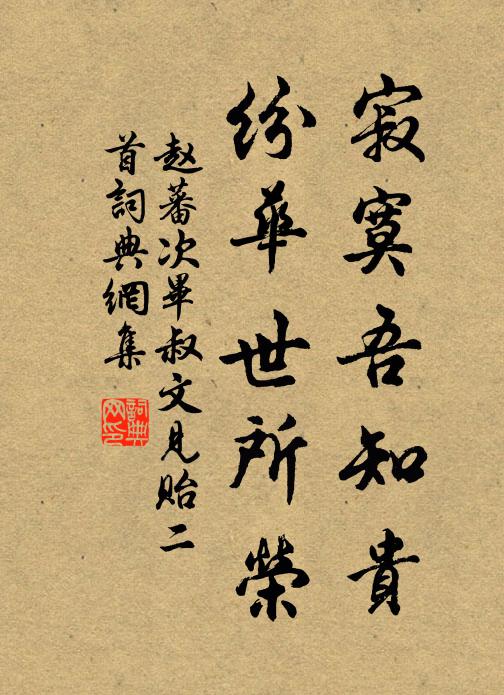 寂寞吾知貴
紛華世所榮
赵蕃次畢叔文見貽二
首詞典網集
詞典
网印